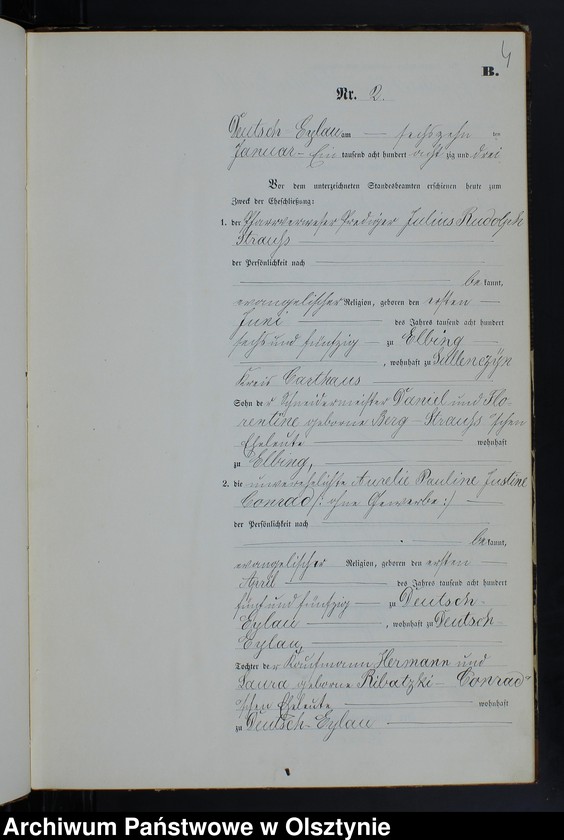 4
B.
Nr. 2.
Deutsch Eylau am sechszehn ten
Januar Ein tausend acht hundert achtzig und drei
Vor dem unterzeichneten Standesbeamten erschienen heute zum
Zweck der Eheschließung:
1. der Pfarrverweser Prediger Julius Rudolph
Strauß
der Persönlichkeit nach
bekannt,
evangelischer Religion, geboren den ersten
Juni des Jahres tausend acht hundert
sechs und fünfzig zu Elbing
, wohnhaft zu Sullenczyn
Kreis Carthaus
Sohn der Schneidermeister Daniel und Flo-
rentine geborne Berg - Strauß 'schen
Eheleute wohnhaft
zu Elbing,
2. die unverehelichte Aurelie Pauline Justine
Conrad /: ohne Gewerbe :/
der Persönlichkeit nach
bekannt,
evangelischer Religion, geboren den ersten
April des Jahres tausend acht hundert
fünf und fünfzig zu Deutsch-
Eylau , wohnhaft zu Deutsch-
Eylau,
Tochter der Kaufmann Hermann und
Laura geborne Ribatzki - Conrad
'schen Eheleute wohnhaft
zu Deutsch-Eylau
Archiwum Państwowe w Olsztynie